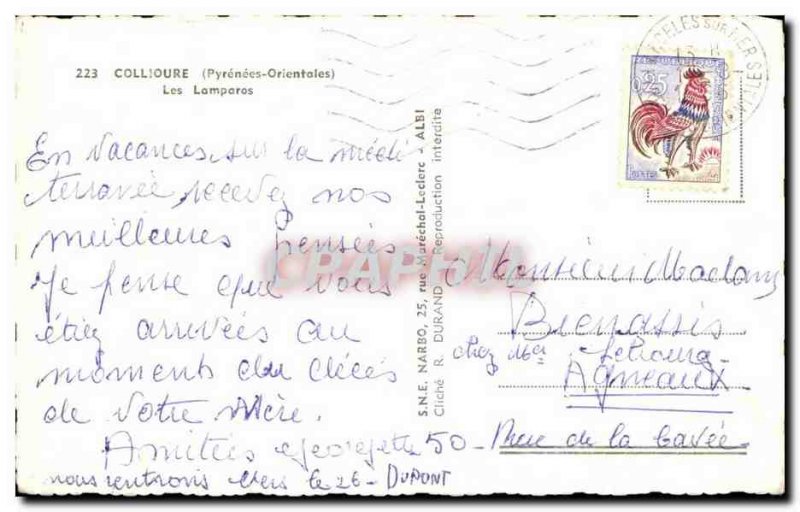 223 COLLIOURE (Pyrénées-Orientales)
Les Lamparos
En vacances sur la médi
terranée, recevez nos
meilleures pensées
Je pense que vous
étiez arrivées au
moment du décès
de votre Mère.
Amitiés Georgette
nous rentrons vers le 26 - DUPONT
S.N.E. NARBO, 25, rue Maréchal-Leclerc - ALBI
Cliché R. DURAND Reproduction interdite
0,25
Monsieur Madame
Bienassis
chez Mr Lebourg
Agneaux
50 - Rue de la Cavée
CPAPHIL